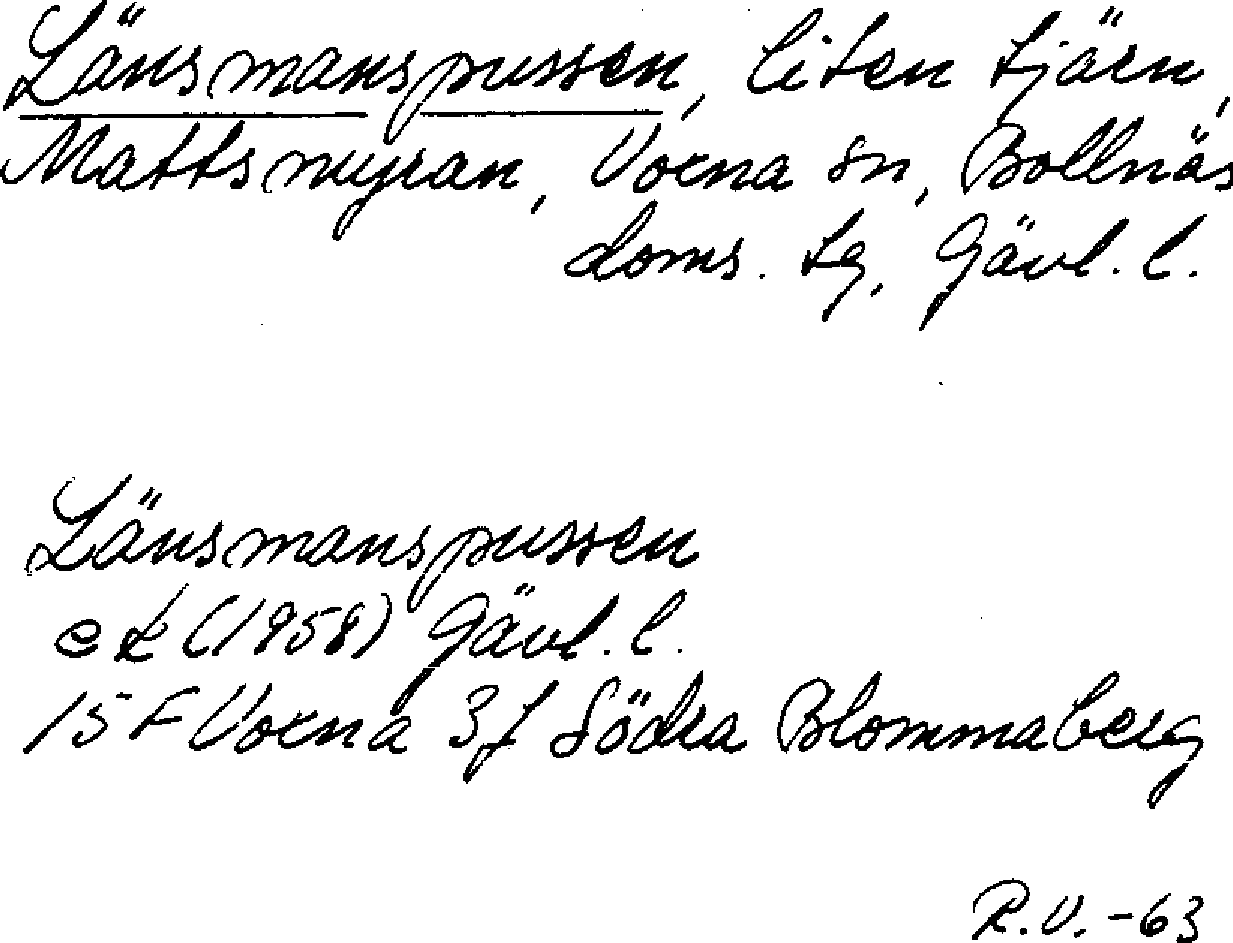 Länsmanspussen, liten tjärn,
Mattsmyran, Voxna sn, Bollnäs
doms. tg, Gävl. l.
Länsmanspussen
ek (1958) Gävl. l.
15 F Voxna 3f Södra Blommaberg
R.V. -63